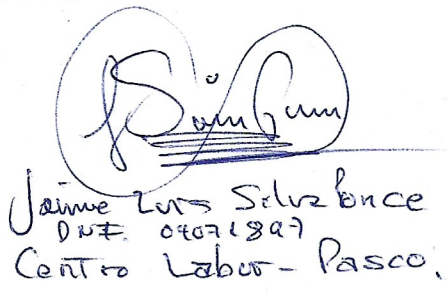 Jaime Luis Silva Ponce
DNI. 04071897
Centro Labor - Pasco.